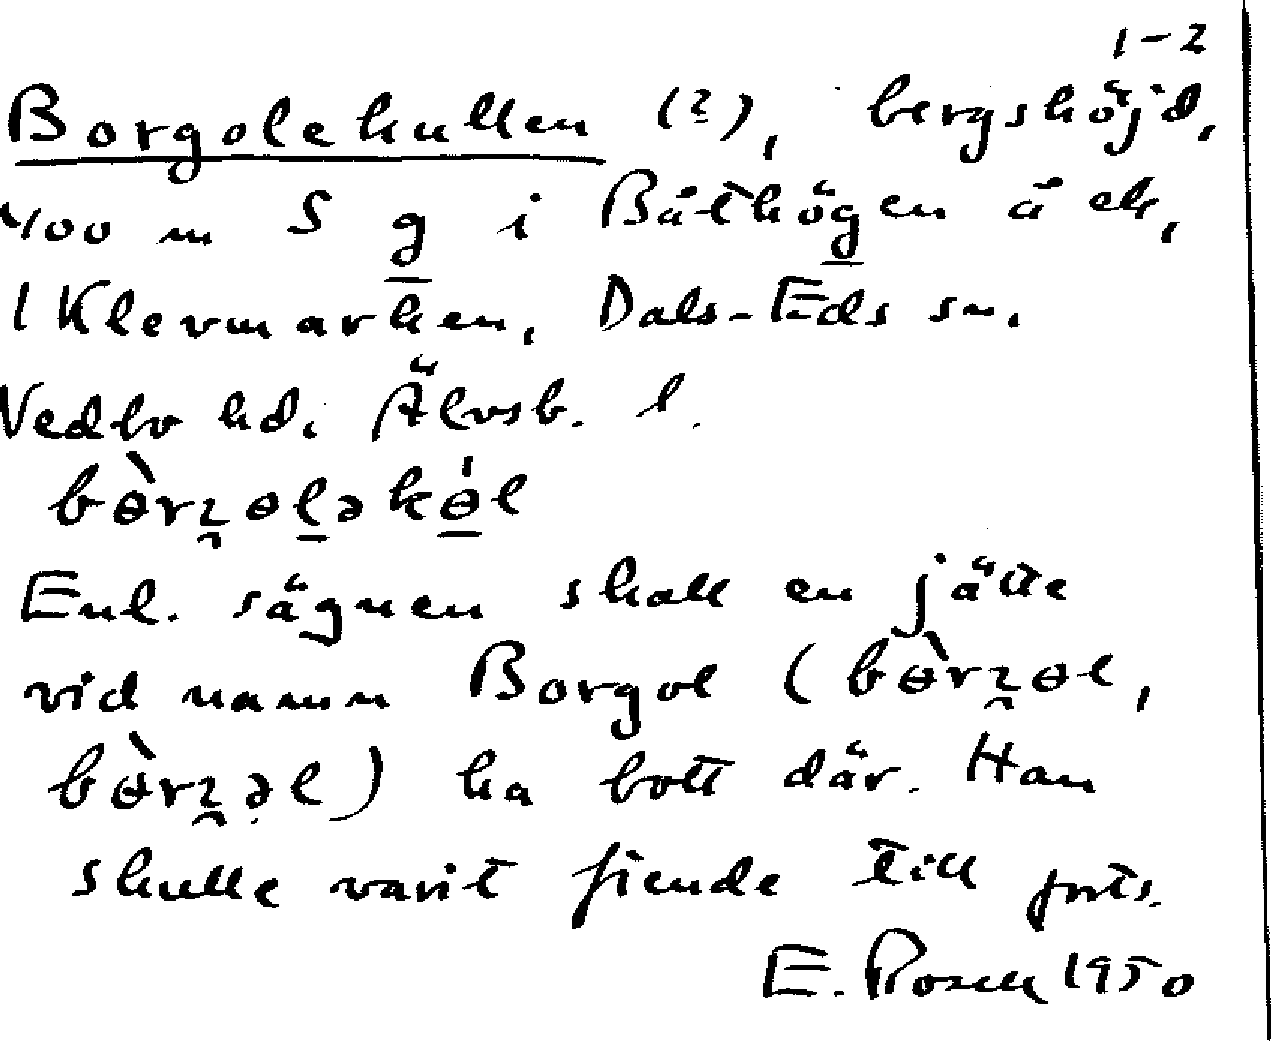 1-2
Borgolekullen (?), bergshöjd,
400 m S g i Båthögen å ek,
1 Klevmarken, Dals-Eds sn.
Vedbo hd. Älvsb. l.
bɵ̀rʒɵlək
Enl. sägnen skall en jätte
vid namn Borgol (bɵ̀rʒɵl,
bɵ̀rʒəl) ha bott där. Han
skulle varit fiende till forts.
E. Rosell 1950